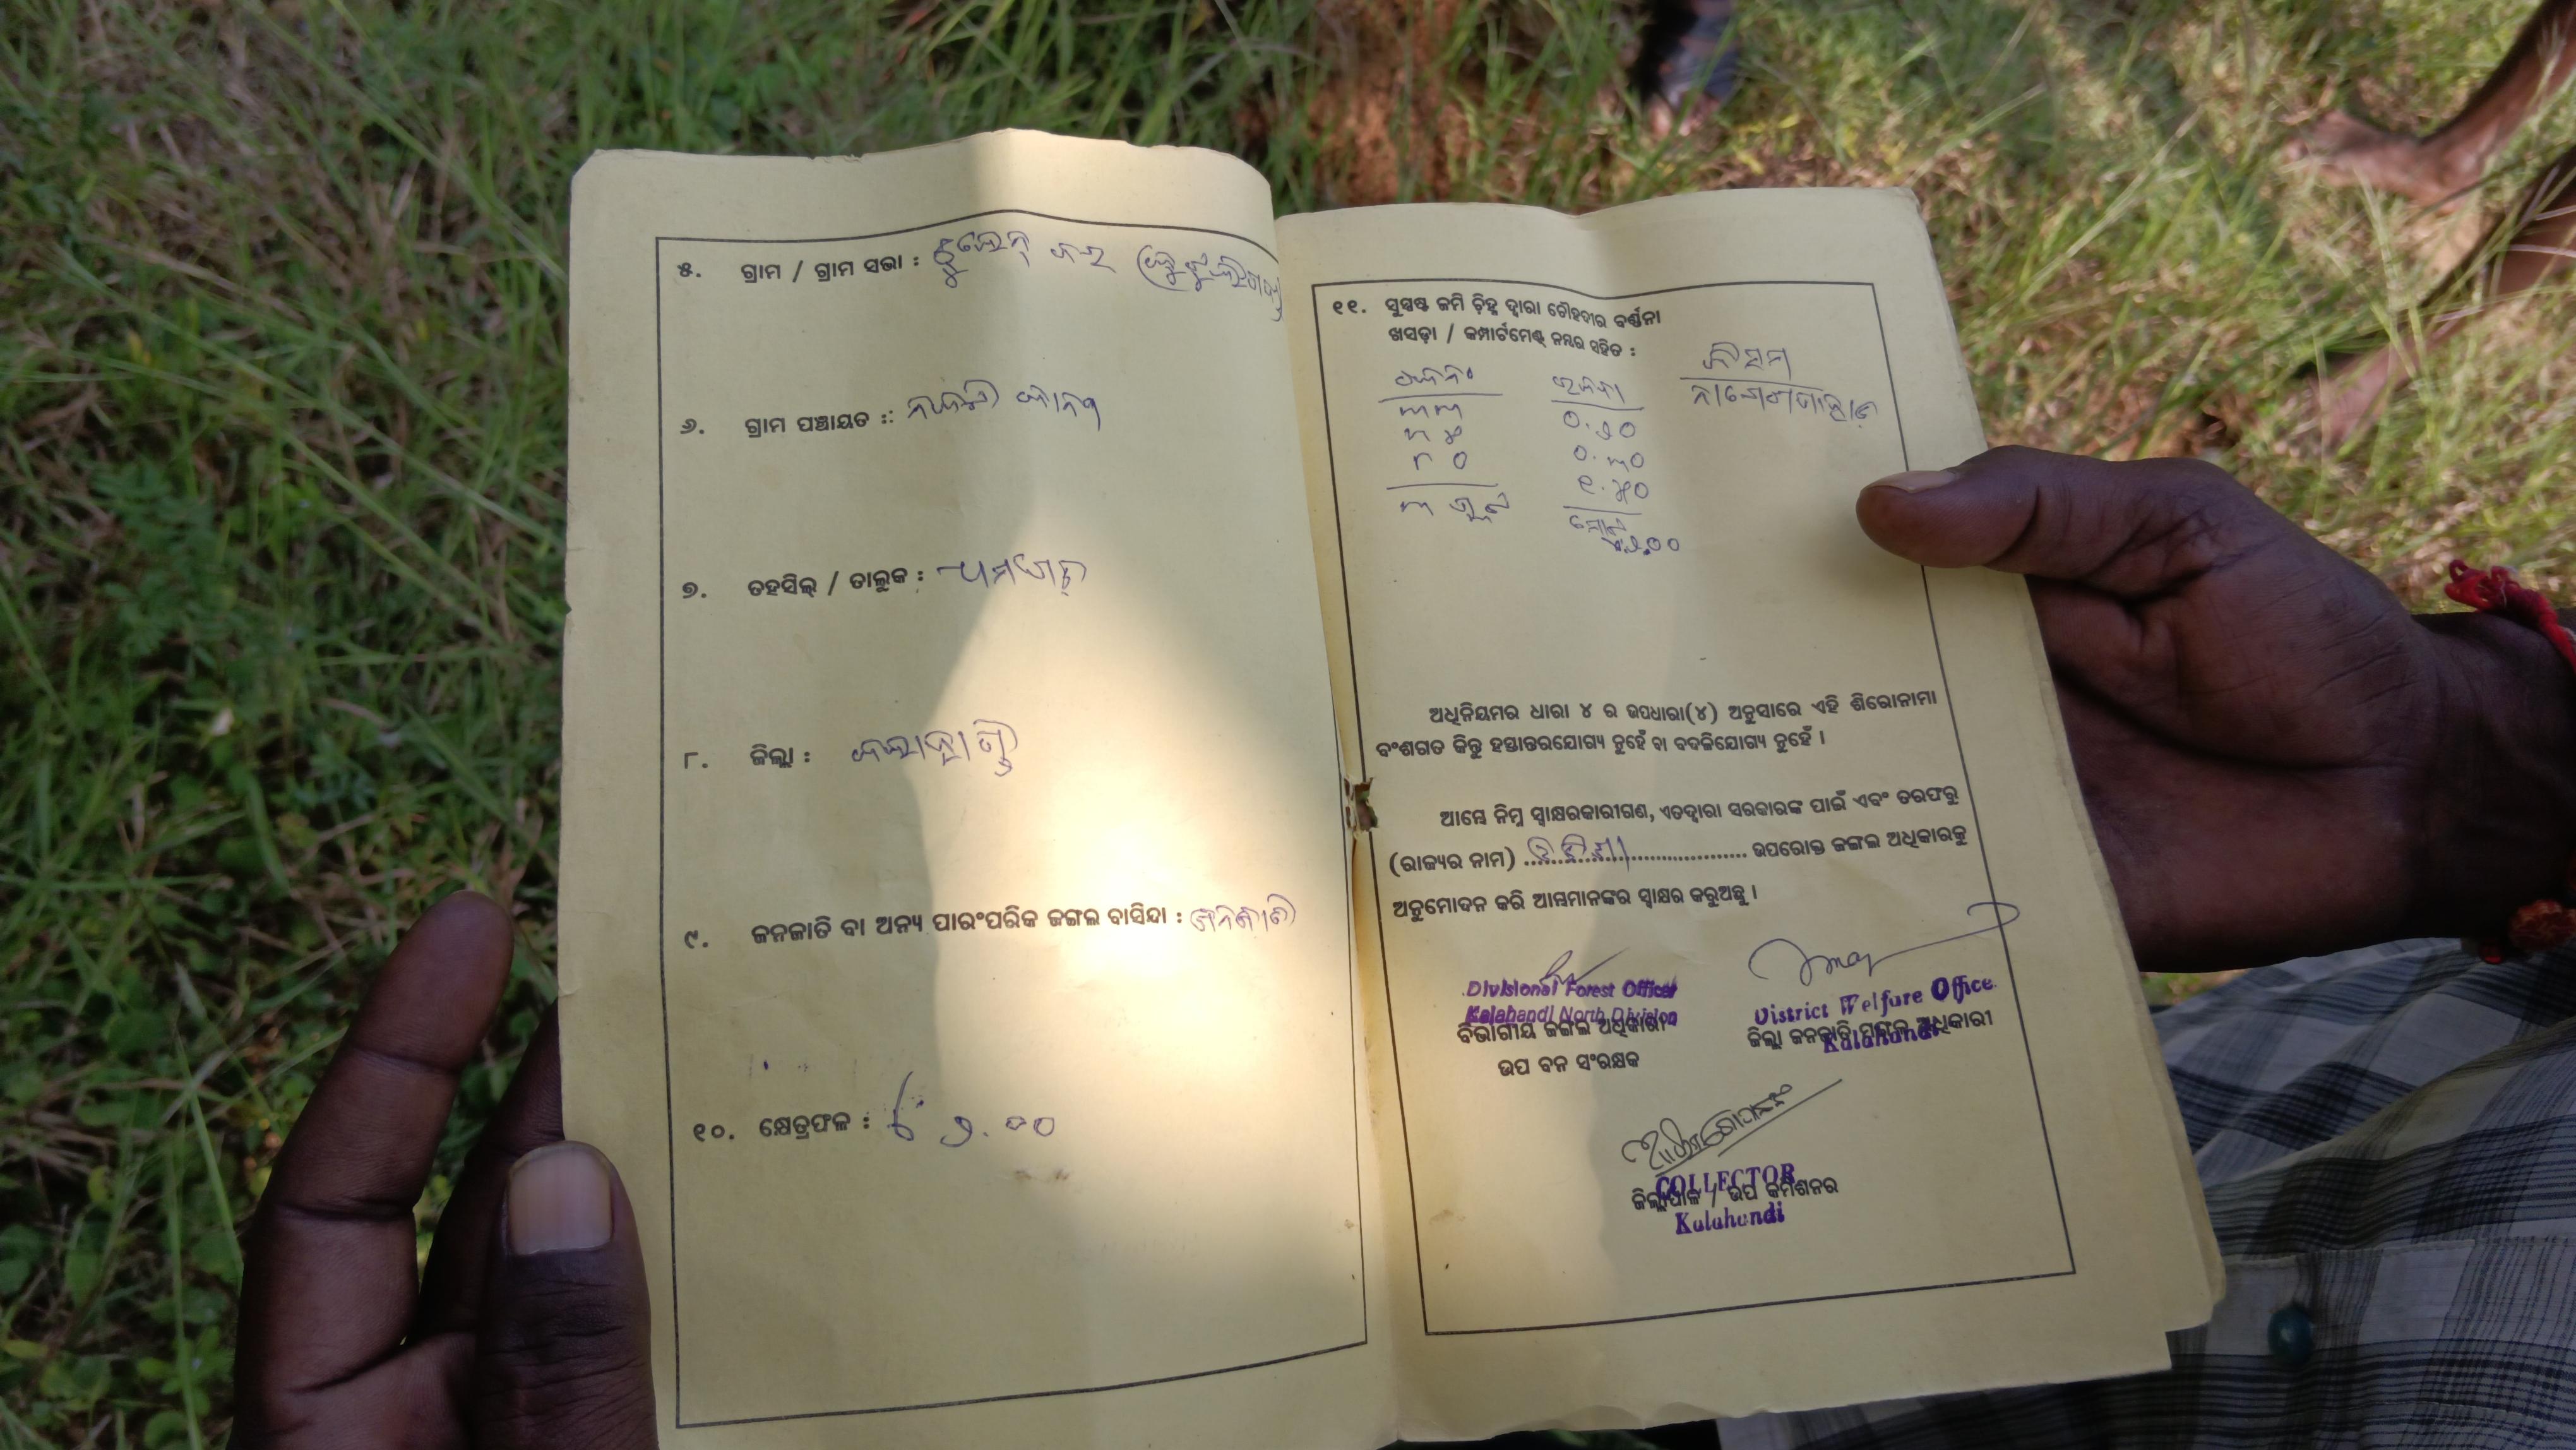 ୫. ଗ୍ରାମ / ଗ୍ରାମ ସଭା :
୬. ଗ୍ରାମ ପଞ୍ଚାୟତ :
୭. ତହସିଲ୍ / ତାଲୁକ :
୮. ଜିଲ୍ଲା : କଳାହାଣ୍ଡି
୯. ଜନଜାତି ବା ଅନ୍ୟ ପାରଂପରିକ ଜଙ୍ଗଲ ବାସିନ୍ଦା : ଜନଜାତି
୧୦. କ୍ଷେତ୍ରଫଳ : ୨.୦୦
୧୧. ସୁସ୍ପଷ୍ଟ ଜମି ଚିହ୍ନ ଦ୍ୱାରା ଚୌହଦୀର ବର୍ଣ୍ଣନା
ଖସଡ଼ା / କମ୍ପାର୍ଟମେଣ୍ଟ ନମ୍ବର ସହିତ :
କିସମ
୩୩ ୦.୨୦
୩୪ ୦.୩୦
୮୦ ୧.୫୦
ଅଧିନିୟମର ଧାରା ୪ ର ଉପଧାରା(୪) ଅନୁସାରେ ଏହି ଶିରୋନାମା
ବଂଶଗତ କିନ୍ତୁ ହସ୍ତାନ୍ତରଯୋଗ୍ୟ ନୁହେଁ ବା ବଦଳିଯୋଗ୍ୟ ନୁହେଁ ।
ଆମ୍ଭେ ନିମ୍ନ ସ୍ୱାକ୍ଷରକାରୀଗଣ, ଏତଦ୍ୱାରା ସରକାରଙ୍କ ପାଇଁ ଏବଂ ତରଫରୁ
(ରାଜ୍ୟର ନାମ) ଓଡିଶା ଉପରୋକ୍ତ ଜଙ୍ଗଲ ଅଧିକାରକୁ
ଅନୁମୋଦନ କରି ଆମ୍ଭମାନଙ୍କର ସ୍ୱାକ୍ଷର କରୁଅଛୁ ।
Divisional Forest Officer
Kalahandi North Division
ବିଭାଗୀୟ ଜଙ୍ଗଲ ଅଧିକାରୀ
ଉପ ବନ ସଂରକ୍ଷକ
District Welfare Office
ଜିଲ୍ଲା ଜନଜାତି ମଙ୍ଗଳ ଅଧିକାରୀ
Kalahandi
COLLECTOR
ଜିଲ୍ଲାପାଳ / ଉପ କମିଶନର
Kalahandi